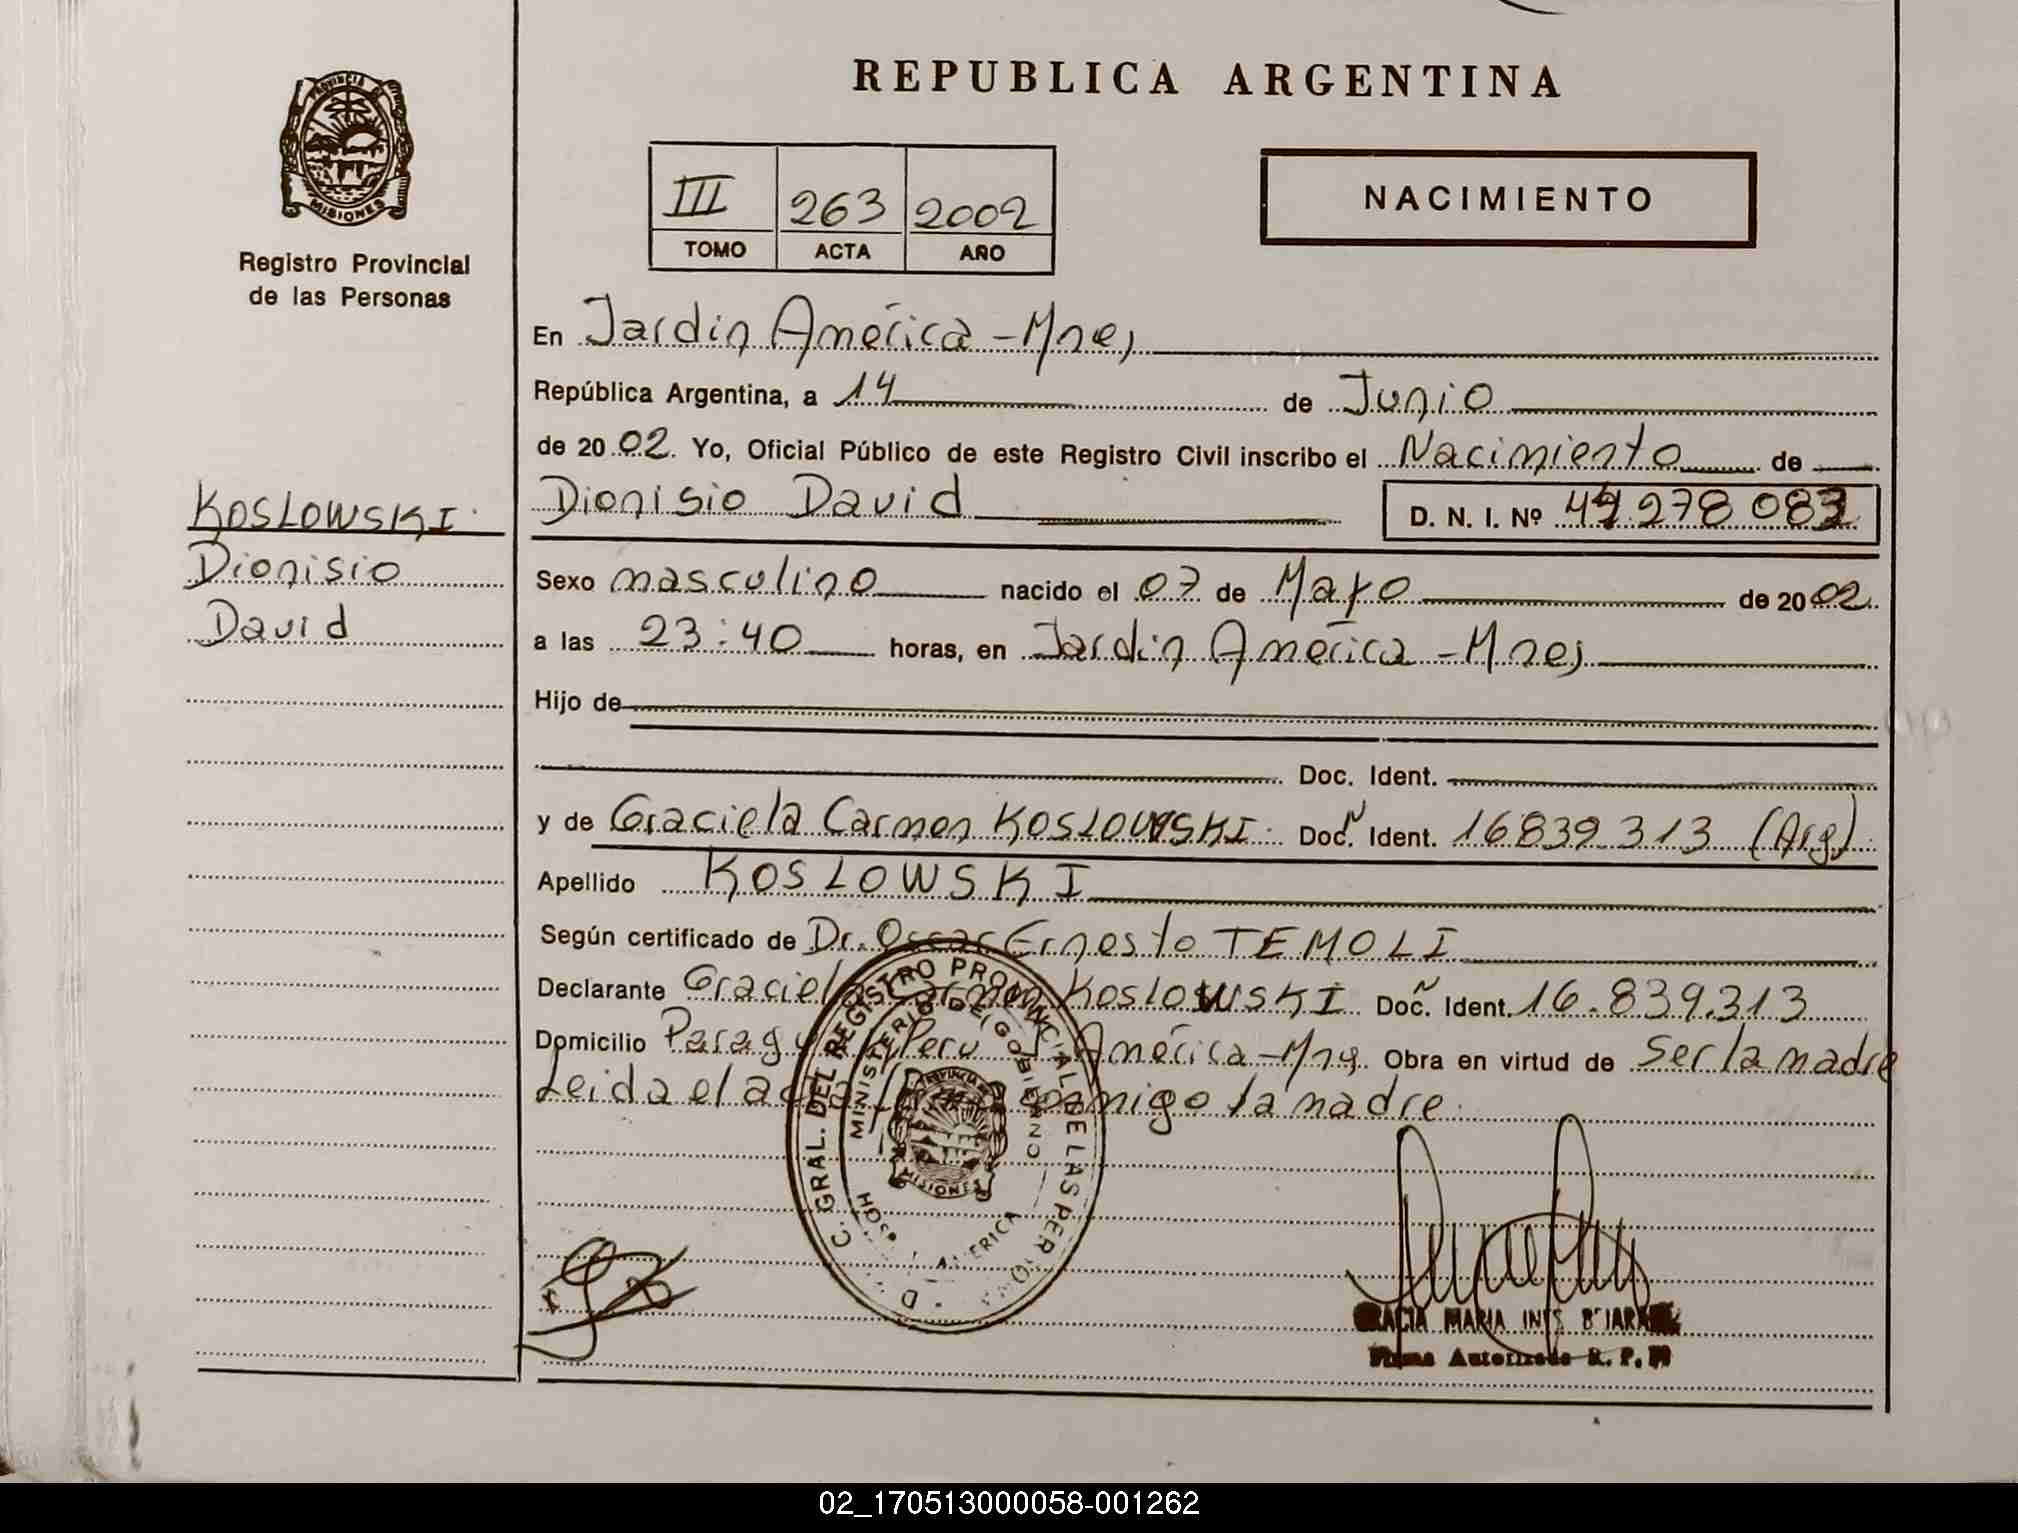 REPUBLICA ARGENTINA
PROVINCIA DE
MISIONES
Registro Provincial
de las Personas
III 263 2002
TOMO ACTA AÑO
NACIMIENTO
En Jardín América - Mnes,
República Argentina, a 14 de Junio
de 2002. Yo, Oficial Público de este Registro Civil inscribo el Nacimiento de
Dionisio David D. N. I. Nº 278 08
KOSLOWSKI
Dionisio
David
Sexo masculino nacido el 07 de Mayo de 2002.
a las 23:40 horas, en Jardín América - Mnes
Hijo de
Doc. Ident.
y de Graciela Carmen KOSLOWSKI. Doc. Ident. 16839313 (Arg).
Apellido KOSLOWSKI
Según certificado de Dr. Oscar Ernesto TEMOLI
Declarante Graciela Carmen KOSLOWSKI Doc. Ident. 16.839.313
Domicilio Perú América - Mns. Obra en virtud de Ser la madre
Leida el acta conmigo la madre.
GRAL. DEL REGISTRO PROVINCIAL DE LAS PER
MINISTERIO DE GOBIERNO
PROVINCIA
MISIONES
AMERICA
MARIA INES
Firma Autorizada R. P. P.
02_170513000058-001262